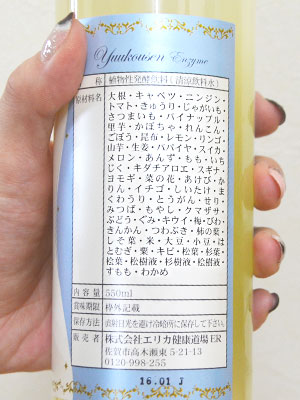 Yuukousen Enzyme
称 植物性発酵飲料(清涼飲料水)
原材料名 大根・キャベツ・ニンジン・
トマト・きゅうり・じゃがいも・
さつまいも・パイナップル・
里芋・かぼちゃ・れんこん・
ごぼう・昆布・レモン・リンゴ・
山芋・生姜・パパイヤ・スイカ・
メロン・あんず・もも・いち
じく・キダチアロエ・スギナ・
ヨモギ・菜の花・あけび・か
りん・イチゴ・しいたけ・ま
くわうり・とうがん・せり・
みつば・もやし・クマザサ・
ぶどう・ぐみ・キウイ・梅・びわ・
きんかん・つわぶき・柿の葉・
しそ葉・米・大豆・小豆・は
とむぎ・粟・キビ・松葉・杉葉・
桧葉・松樹液・杉樹液・桧樹液・
すもも・わかめ
内容量 550ml
賞味期限 枠外記載
保存方法 直射日光を避け冷暗所に保存して下さい
販売者 株式会社エリカ健康道場ER
佐賀市高木瀬東5-21-13
0120-998-255
16.01 J